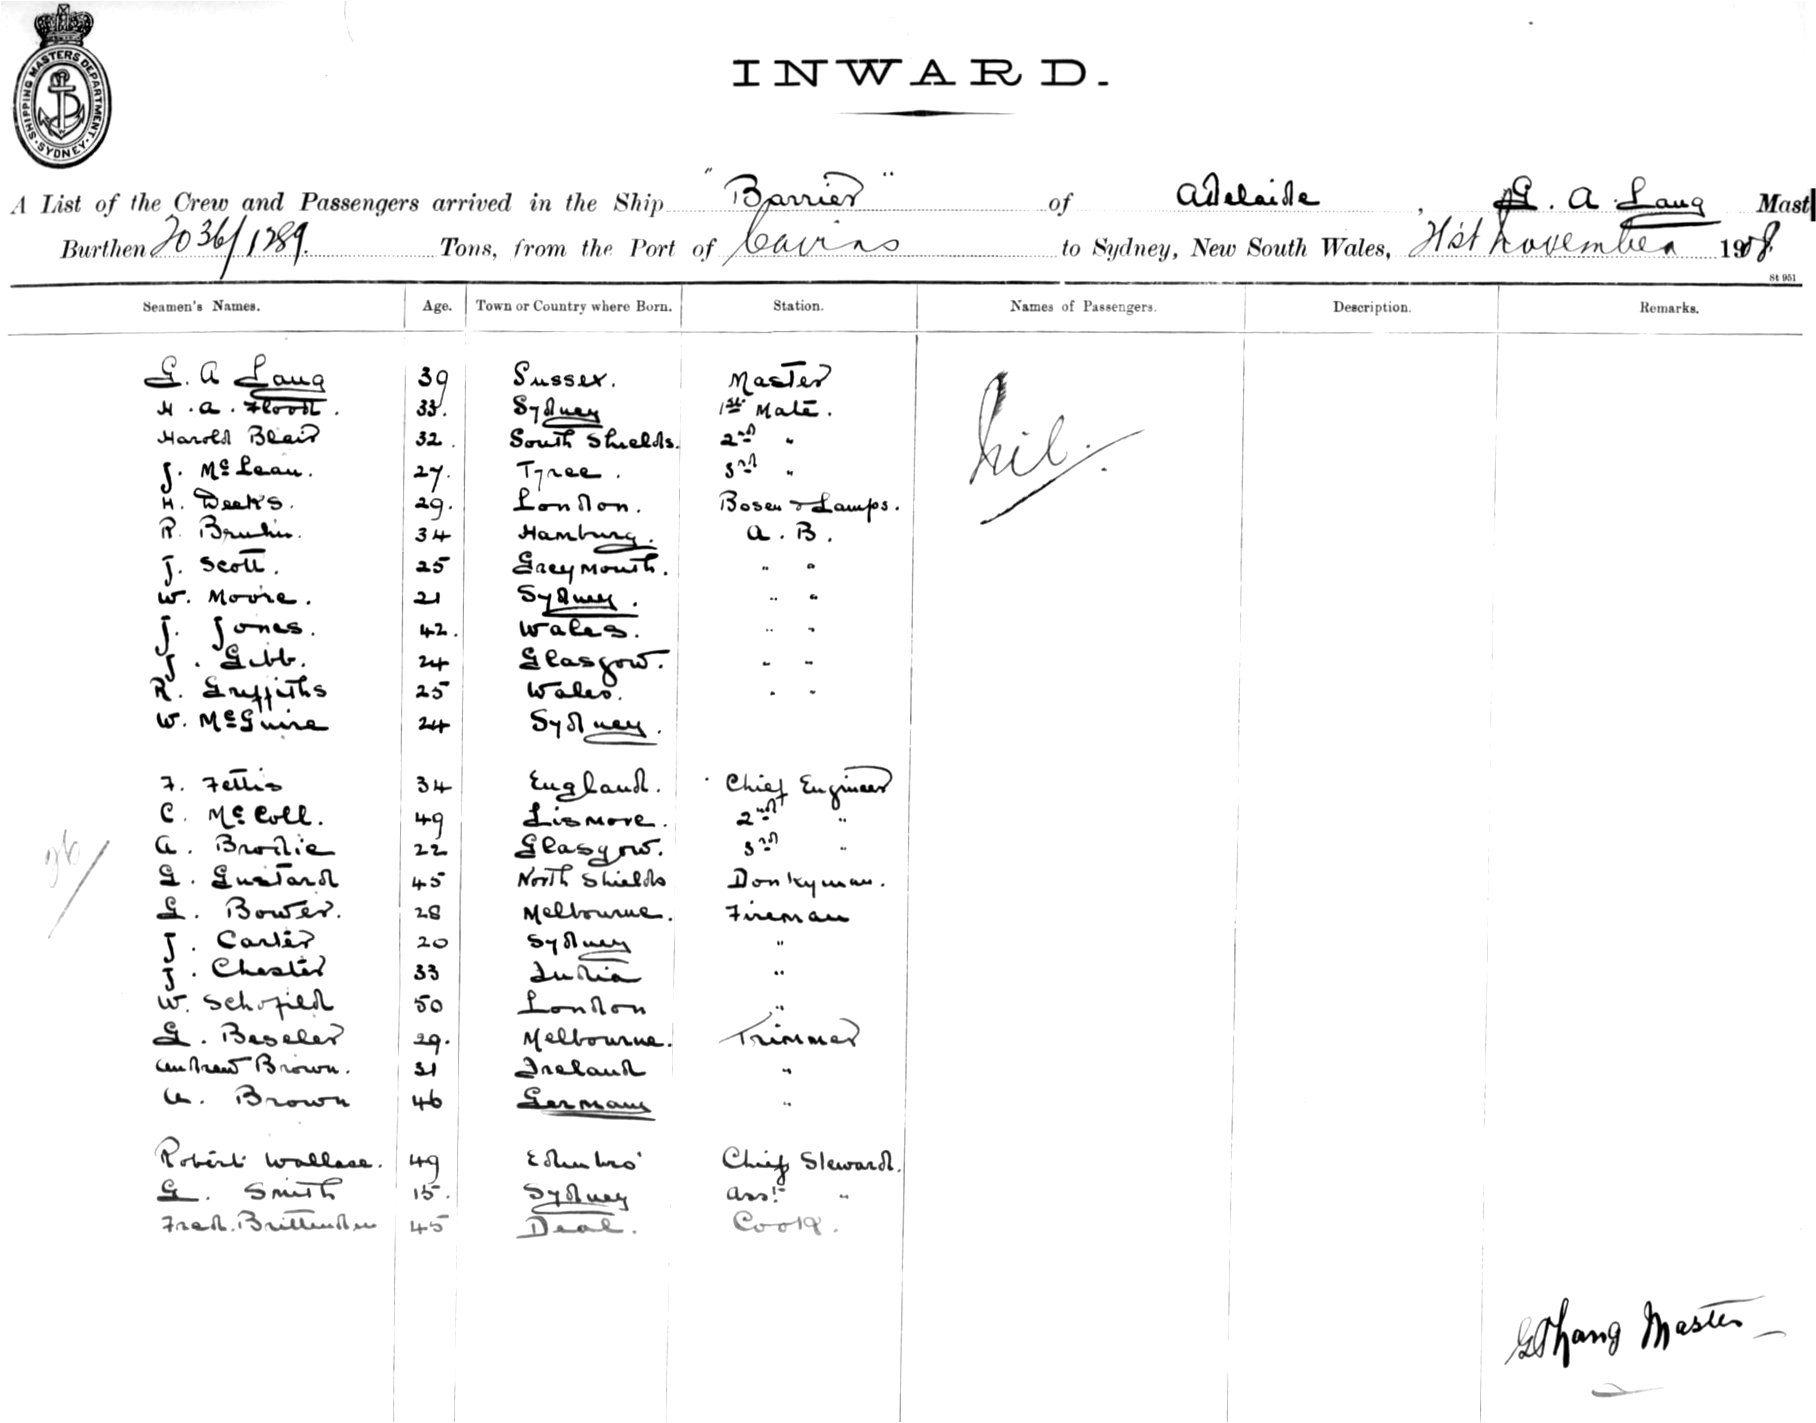 SHIPPING MASTERS DEPARTMENT. SYDNEY.
INWARD.
A List of the Crew and Passengers arrived in the Ship "Barrier" of Adelaide, G. A. Lang Mast
Burthen 2036/1289. Tons, from the Port of Cairns to Sydney, New South Wales, 21st November 1908.
St 951
Seamen's Names. Age. Town or Country where Born. Station. Names of Passengers. Description. Remarks.
G. A Lang 39 Sussex. Master
H. A. Flood. 33. Sydney 1st Mate.
Harold Blair 32. South Shields. 2nd "
J. McLean. 27. Tyree. 3rd "
Nil.
H. Deeks. 29. London. Bosen & Lamps.
R. 34 Hamburg. A. B.
J. Scott. 25 Greymouth. " "
W. Moore. 21 Sydney. " "
J. Jones. 42. Wales. " "
J. Gibb. 24 Glasgow. " "
R. Griffiths 25 Wales. " "
W. McGuire 24 Sydney.
F. Fettis 34 England. Chief Engineer
C. McColl. 49 Lismore. 2nd "
A. Brodie 22 Glasgow. 3rd "
26/
G. Gustard 45 North Shields Donkyman.
G. Bower. 28 Melbourne. Fireman
J. Carter 20 Sydney "
J. Chester 33 India "
W. Schofield 50 London "
G. Beseler 29. Melbourne. Trimmer
Andrew Brown. 31 Ireland "
A. Brown 46 Germany "
Robert Wallace. 49 Edinbro' Chief Steward.
G. Smith 15. Sydney Asst "
Fred. Brittenden 45 Deal. Cook.
G A Lang Master